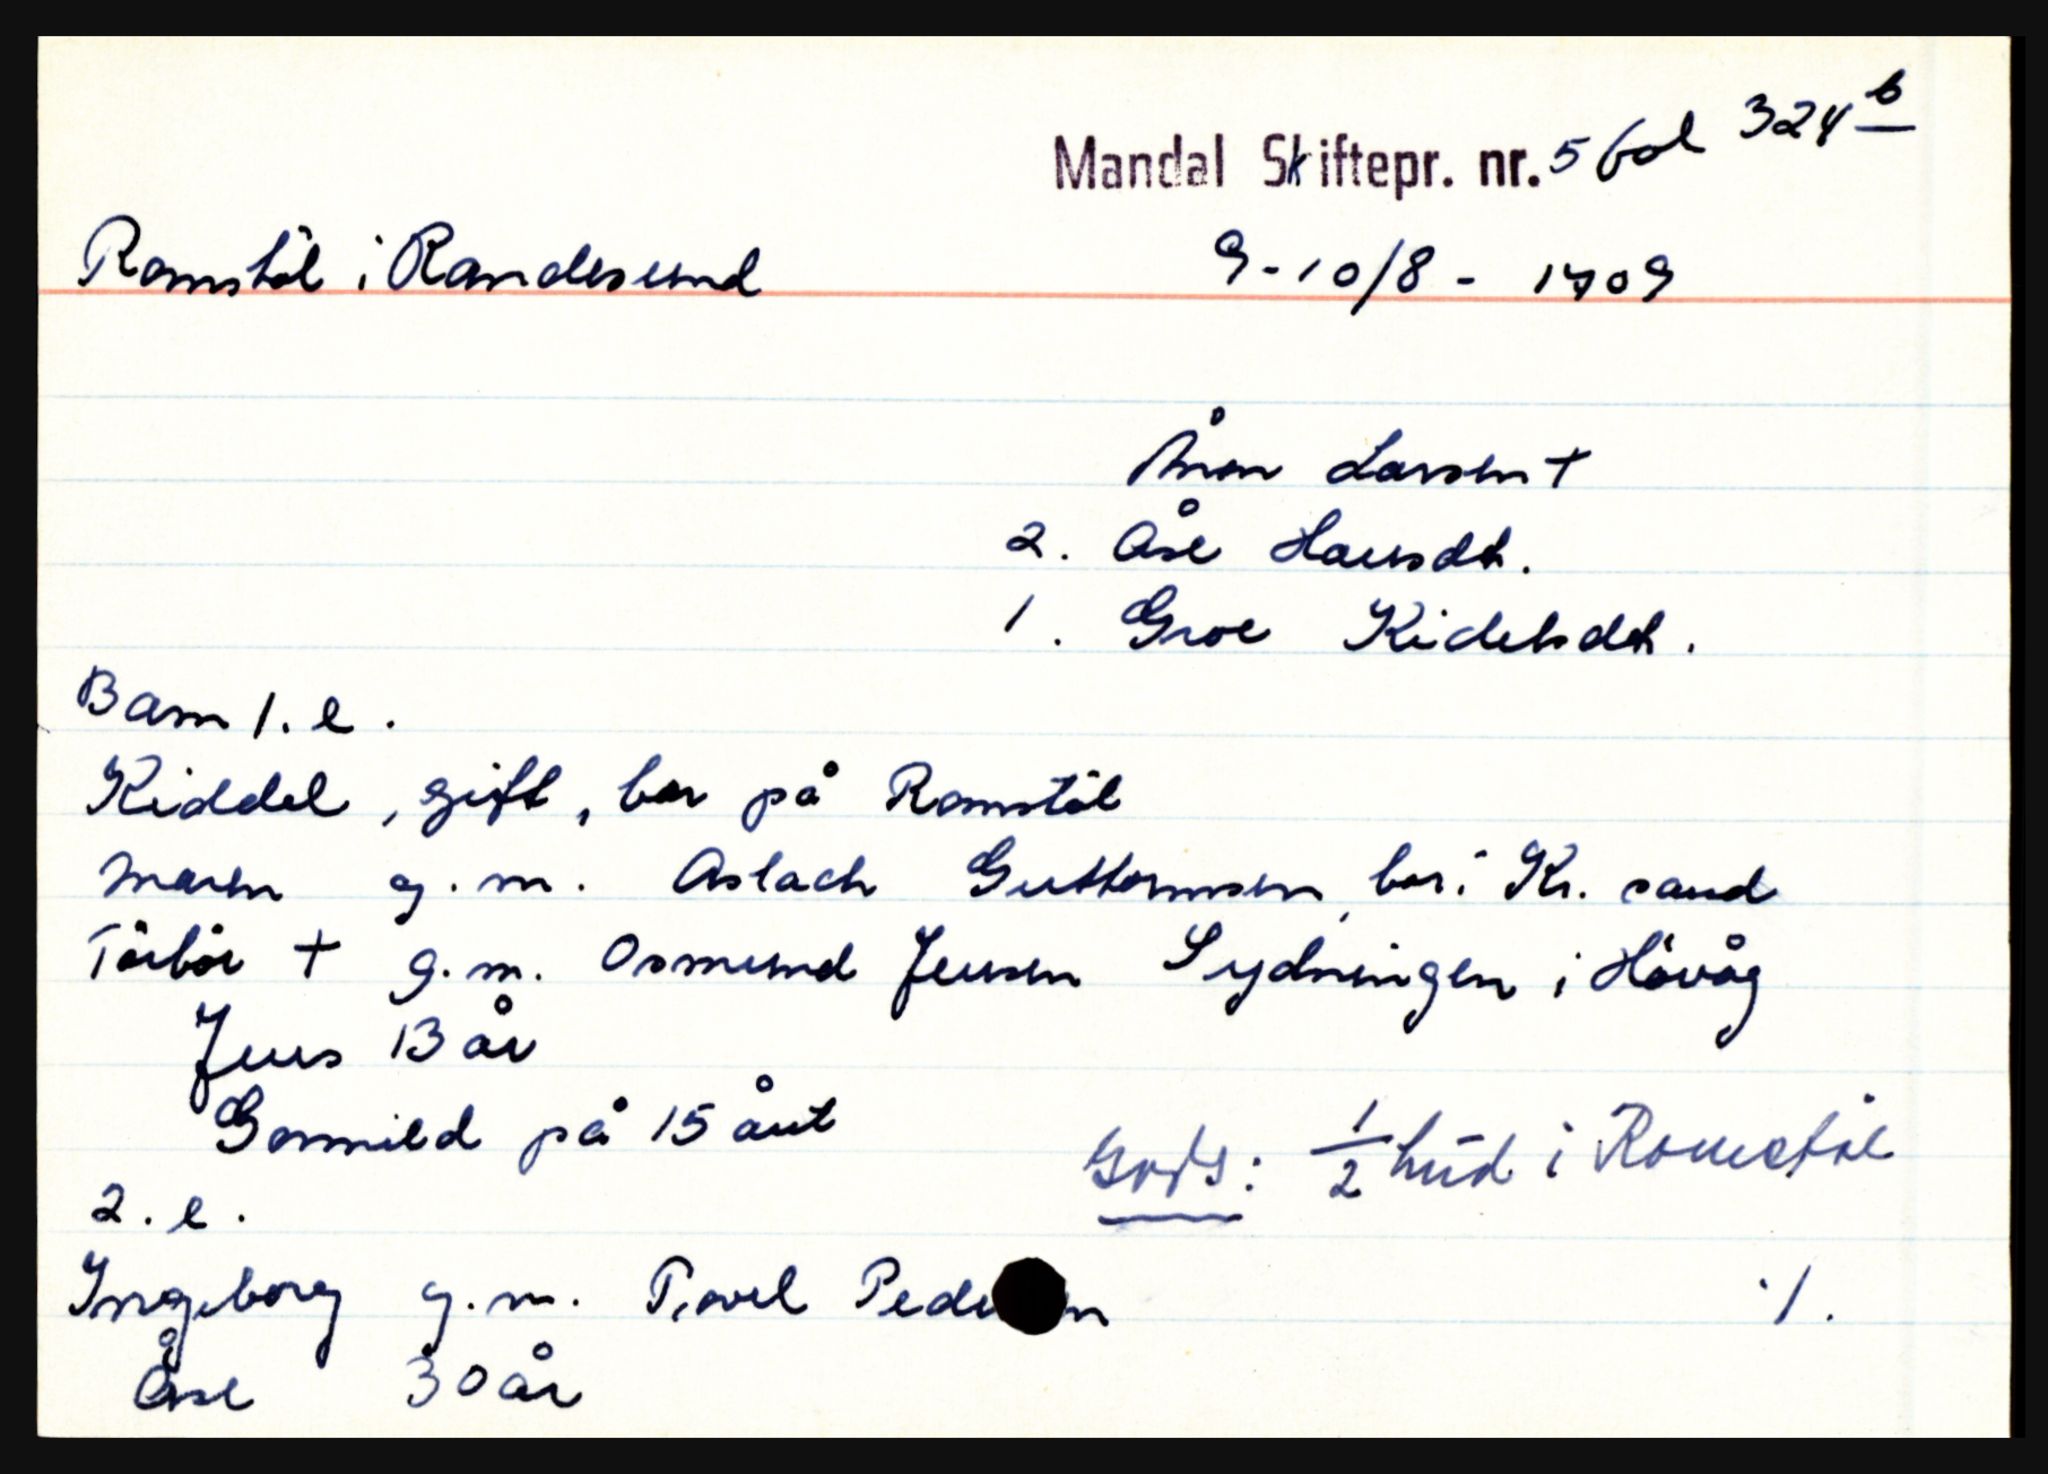 Mandal Skiftepr. nr. 5 fol 324 b
Romstöl i Randesund 9-10/8 - 1709
Ånon Larsen +
2. Åse Hansdtr.
1. Groe Kidelsdtr.
Barn 1. e.
Kiddel, gift, bor på Romstöl
Maren g.m. Aslach Guttormsen, bor i Kr. sand
Torbör + g.m. Osmund Jensen Sydningen i Hövåg
Jens 13 år
Gormild på 15 året
Gods: 1/2 hud i Romstöl
2. e.
Ingeborg g.m. Povel Pedersen
·/.
Åse 30 år